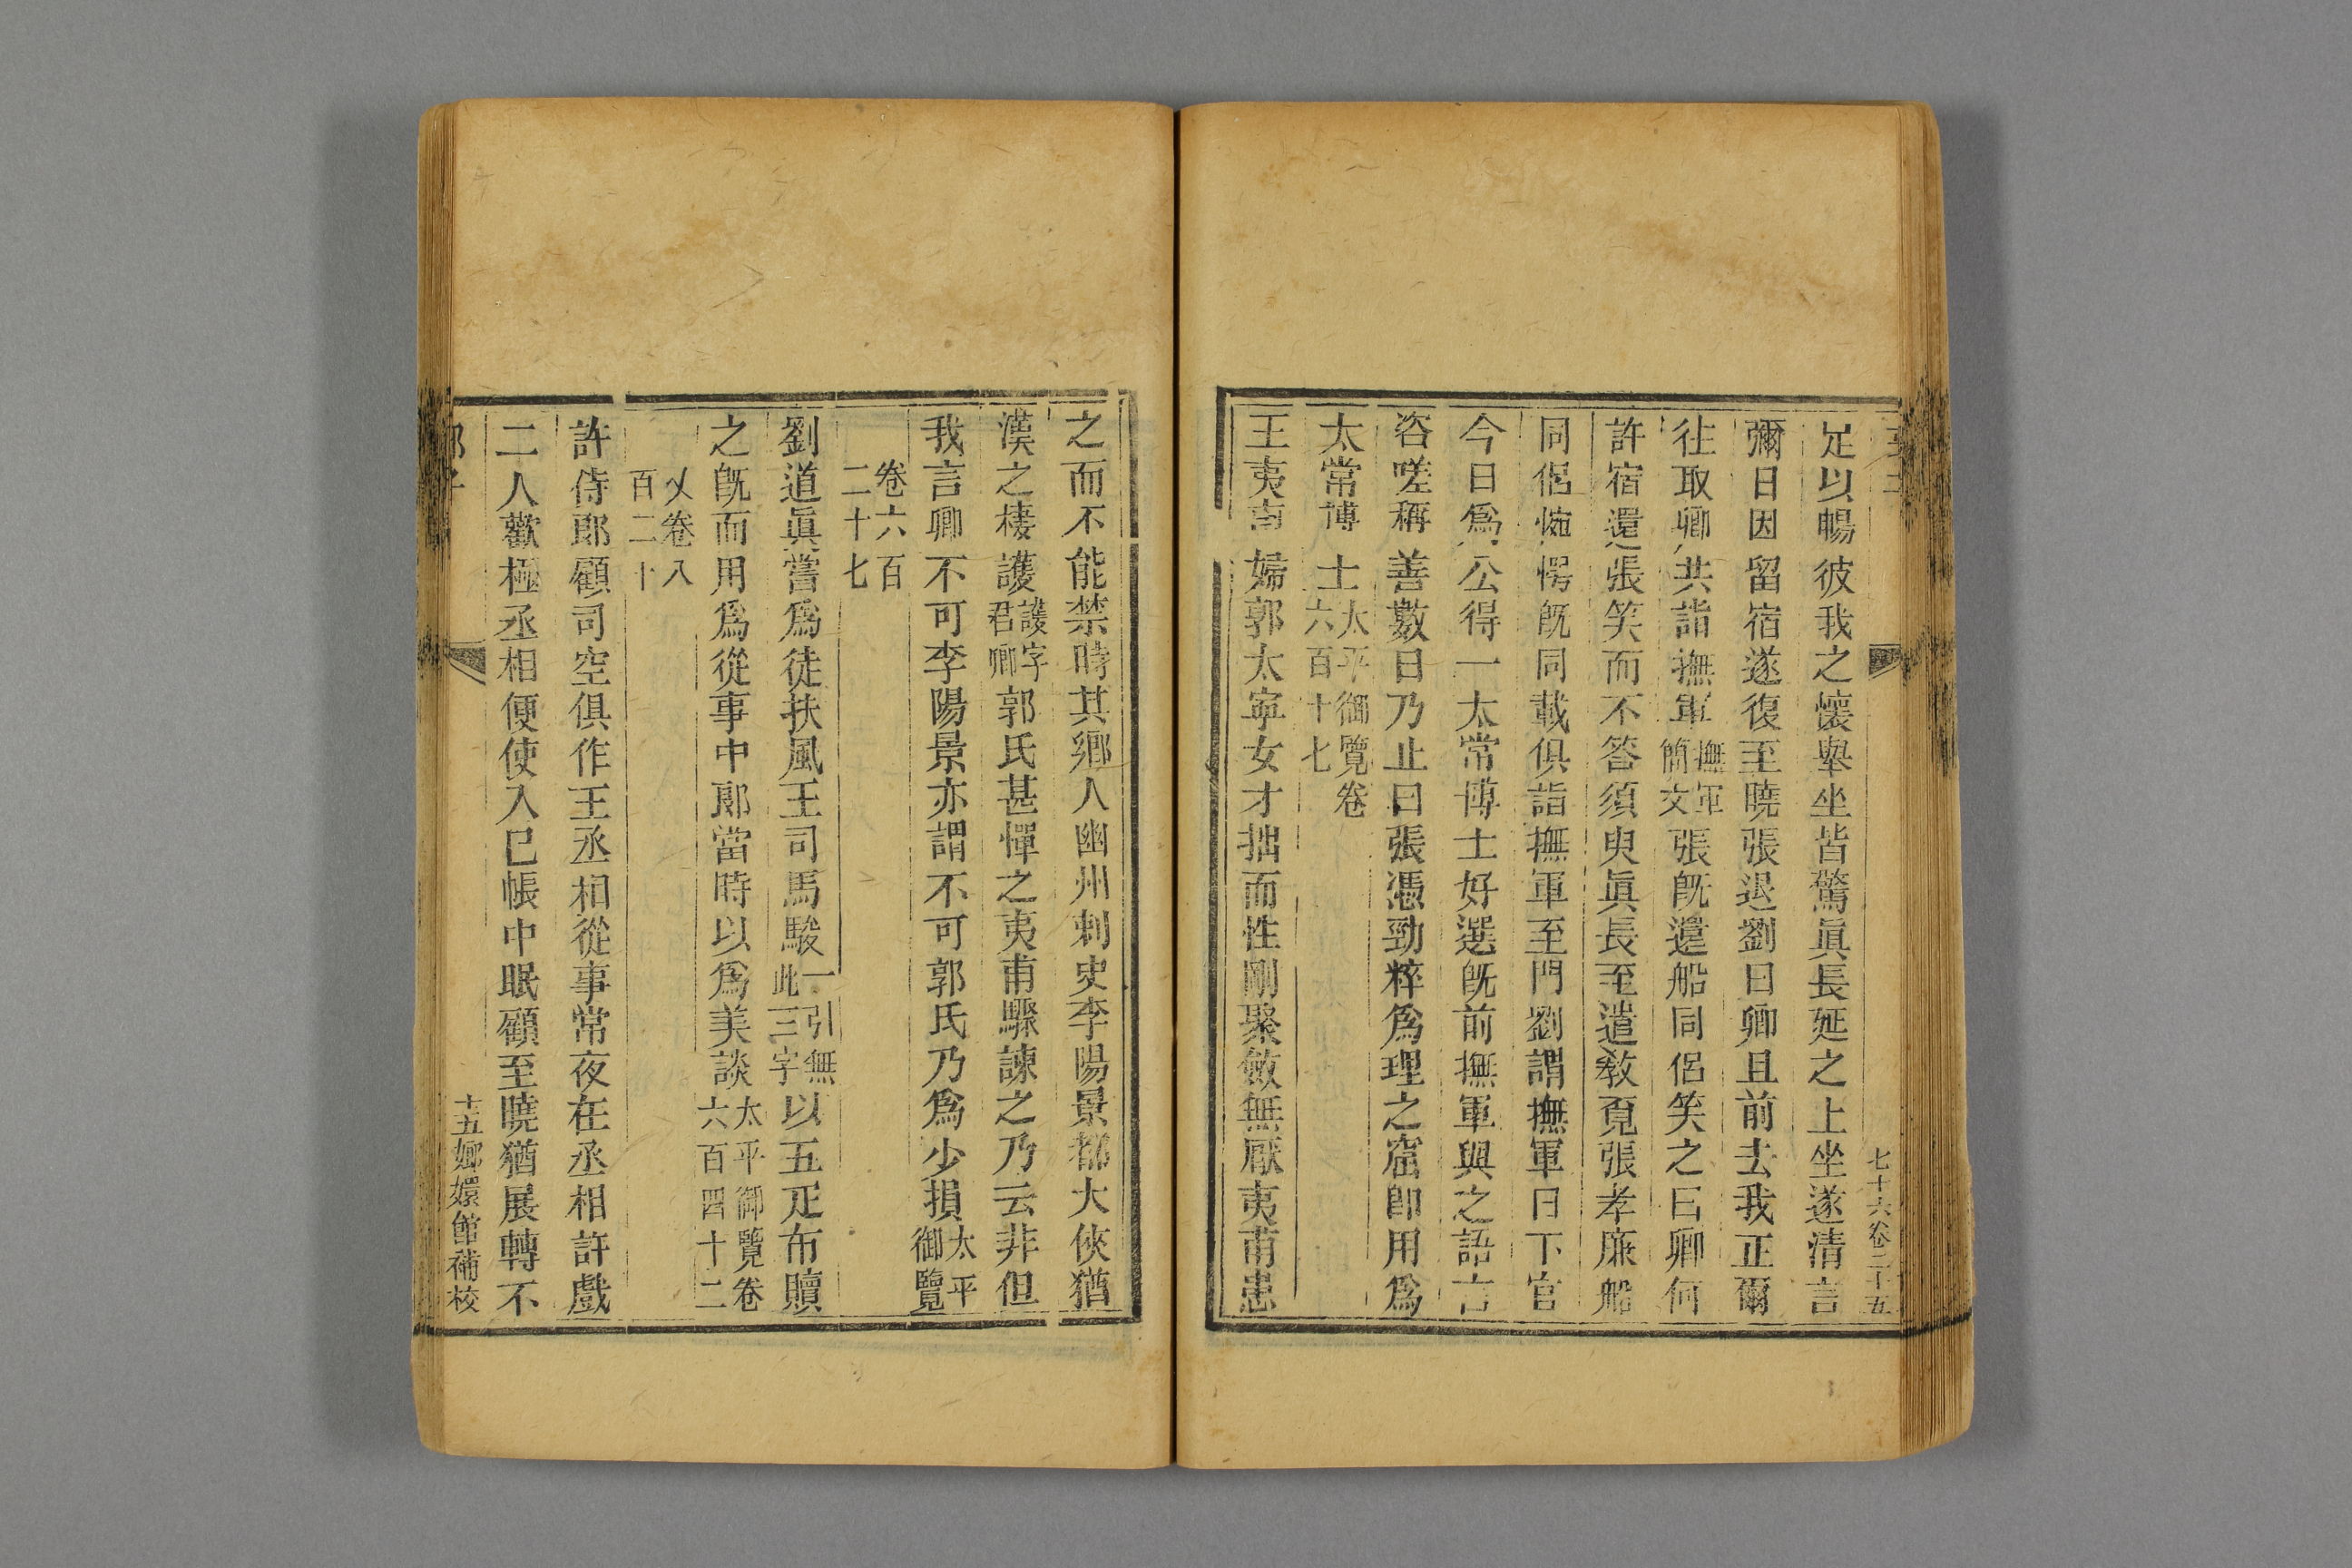 七十六卷二十五
足以暢彼我之懷舉坐皆驚眞長延之上坐遂清言
彌日因留宿遂復至曉張退劉曰卿且前去我正爾
往取卿共詣撫軍撫軍簡文張旣還船同侶笑之曰卿何
許宿還張笑而不答須臾眞長至遣敎覓張孝廉船
同侶惋愕旣同載俱詣撫軍至門劉謂撫軍曰下官
今日爲公得一太常博士好選旣前撫軍與之語言
咨嗟稱善數日乃止曰張憑勁粹爲理之窟卽用爲
太常博士太平御覽卷六百十七
王夷甫婦郭太寧女才拙而性剛聚斂無厭夷甫患
之而不能禁時其鄉人幽州刺史李陽景都大俠猶
漢之樓護護字君卿郭氏甚憚之夷甫驟諫之乃云非但
我言卿不可李陽景亦謂不可郭氏乃爲少損太平御覽
卷六百二十七
劉道眞嘗爲徒扶風王司馬駿一引無此三字以五疋布贖
之旣而用爲從事中郞當時以爲美談太平御覽卷六百四十二
乂卷八百二十
許侍郞顧司空俱作王丞相從事常夜在丞相許戲
二人歡極丞相便使入已帳中眠顧至曉猶展轉不
十五嫏嬛館補校